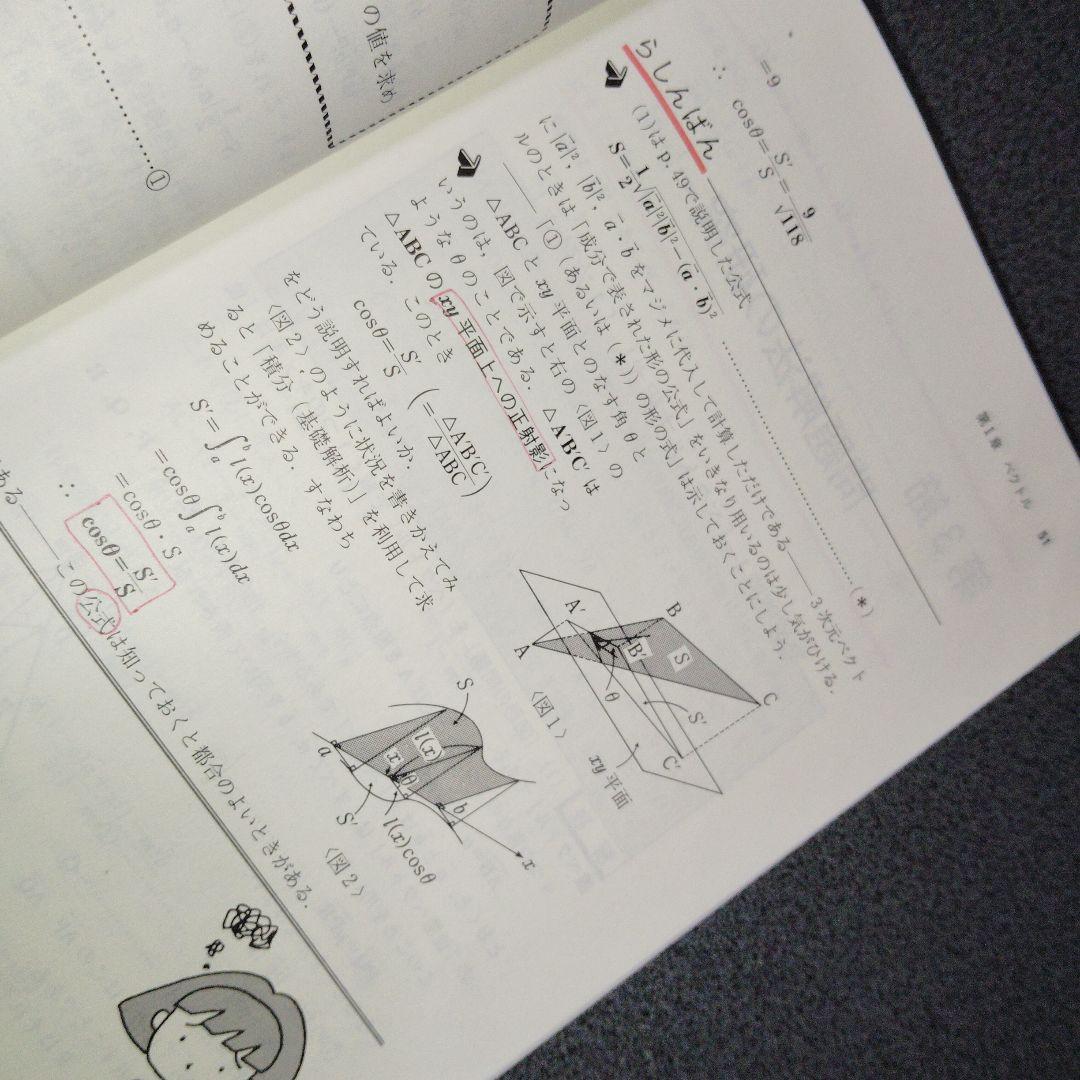 の値を求め
①
第1章 ベクトル 51
=9
∴ cosθ=S′/S=9/√118
らしんばん
(1)はp. 49で説明した公式
S=1/2√|a|²|b|²−(a・b)² ……………(*)
に|a|², |b|², a・bをマジメに代入して計算しただけである——3次元ベクト
ルのときは「成分で表された形の公式」をいきなり用いるのは少し気がひける.
——「①(あるいは(*))の形の式」は示しておくことにしよう.
△ABCとxy平面とのなす角θと
いうのは, 図で示すと右の〈図1〉の
ようなθのことである. △A′B′C′は
△ABCのxy平面上への正射影になっ
ている. このとき
cosθ=S′/S (=△A′B′C′/△ABC)
をどう説明すればよいか.
〈図2〉のように状況を書きかえてみ
ると「積分(基礎解析)」を利用して求
めることができる. すなわち
S′=∫ₐᵇl(x)cosθdx
=cosθ∫ₐᵇl(x)dx
=cosθ・S
∴ cosθ=S′/S.
ある—— この公式は知っておくと都合のよいときがある.
A′
B
A
B′
S
θ
C
S′
C′
〈図1〉
xy平面
S
l(x)
a
x
θ
b
S′
l(x)cosθ
x
〈図2〉